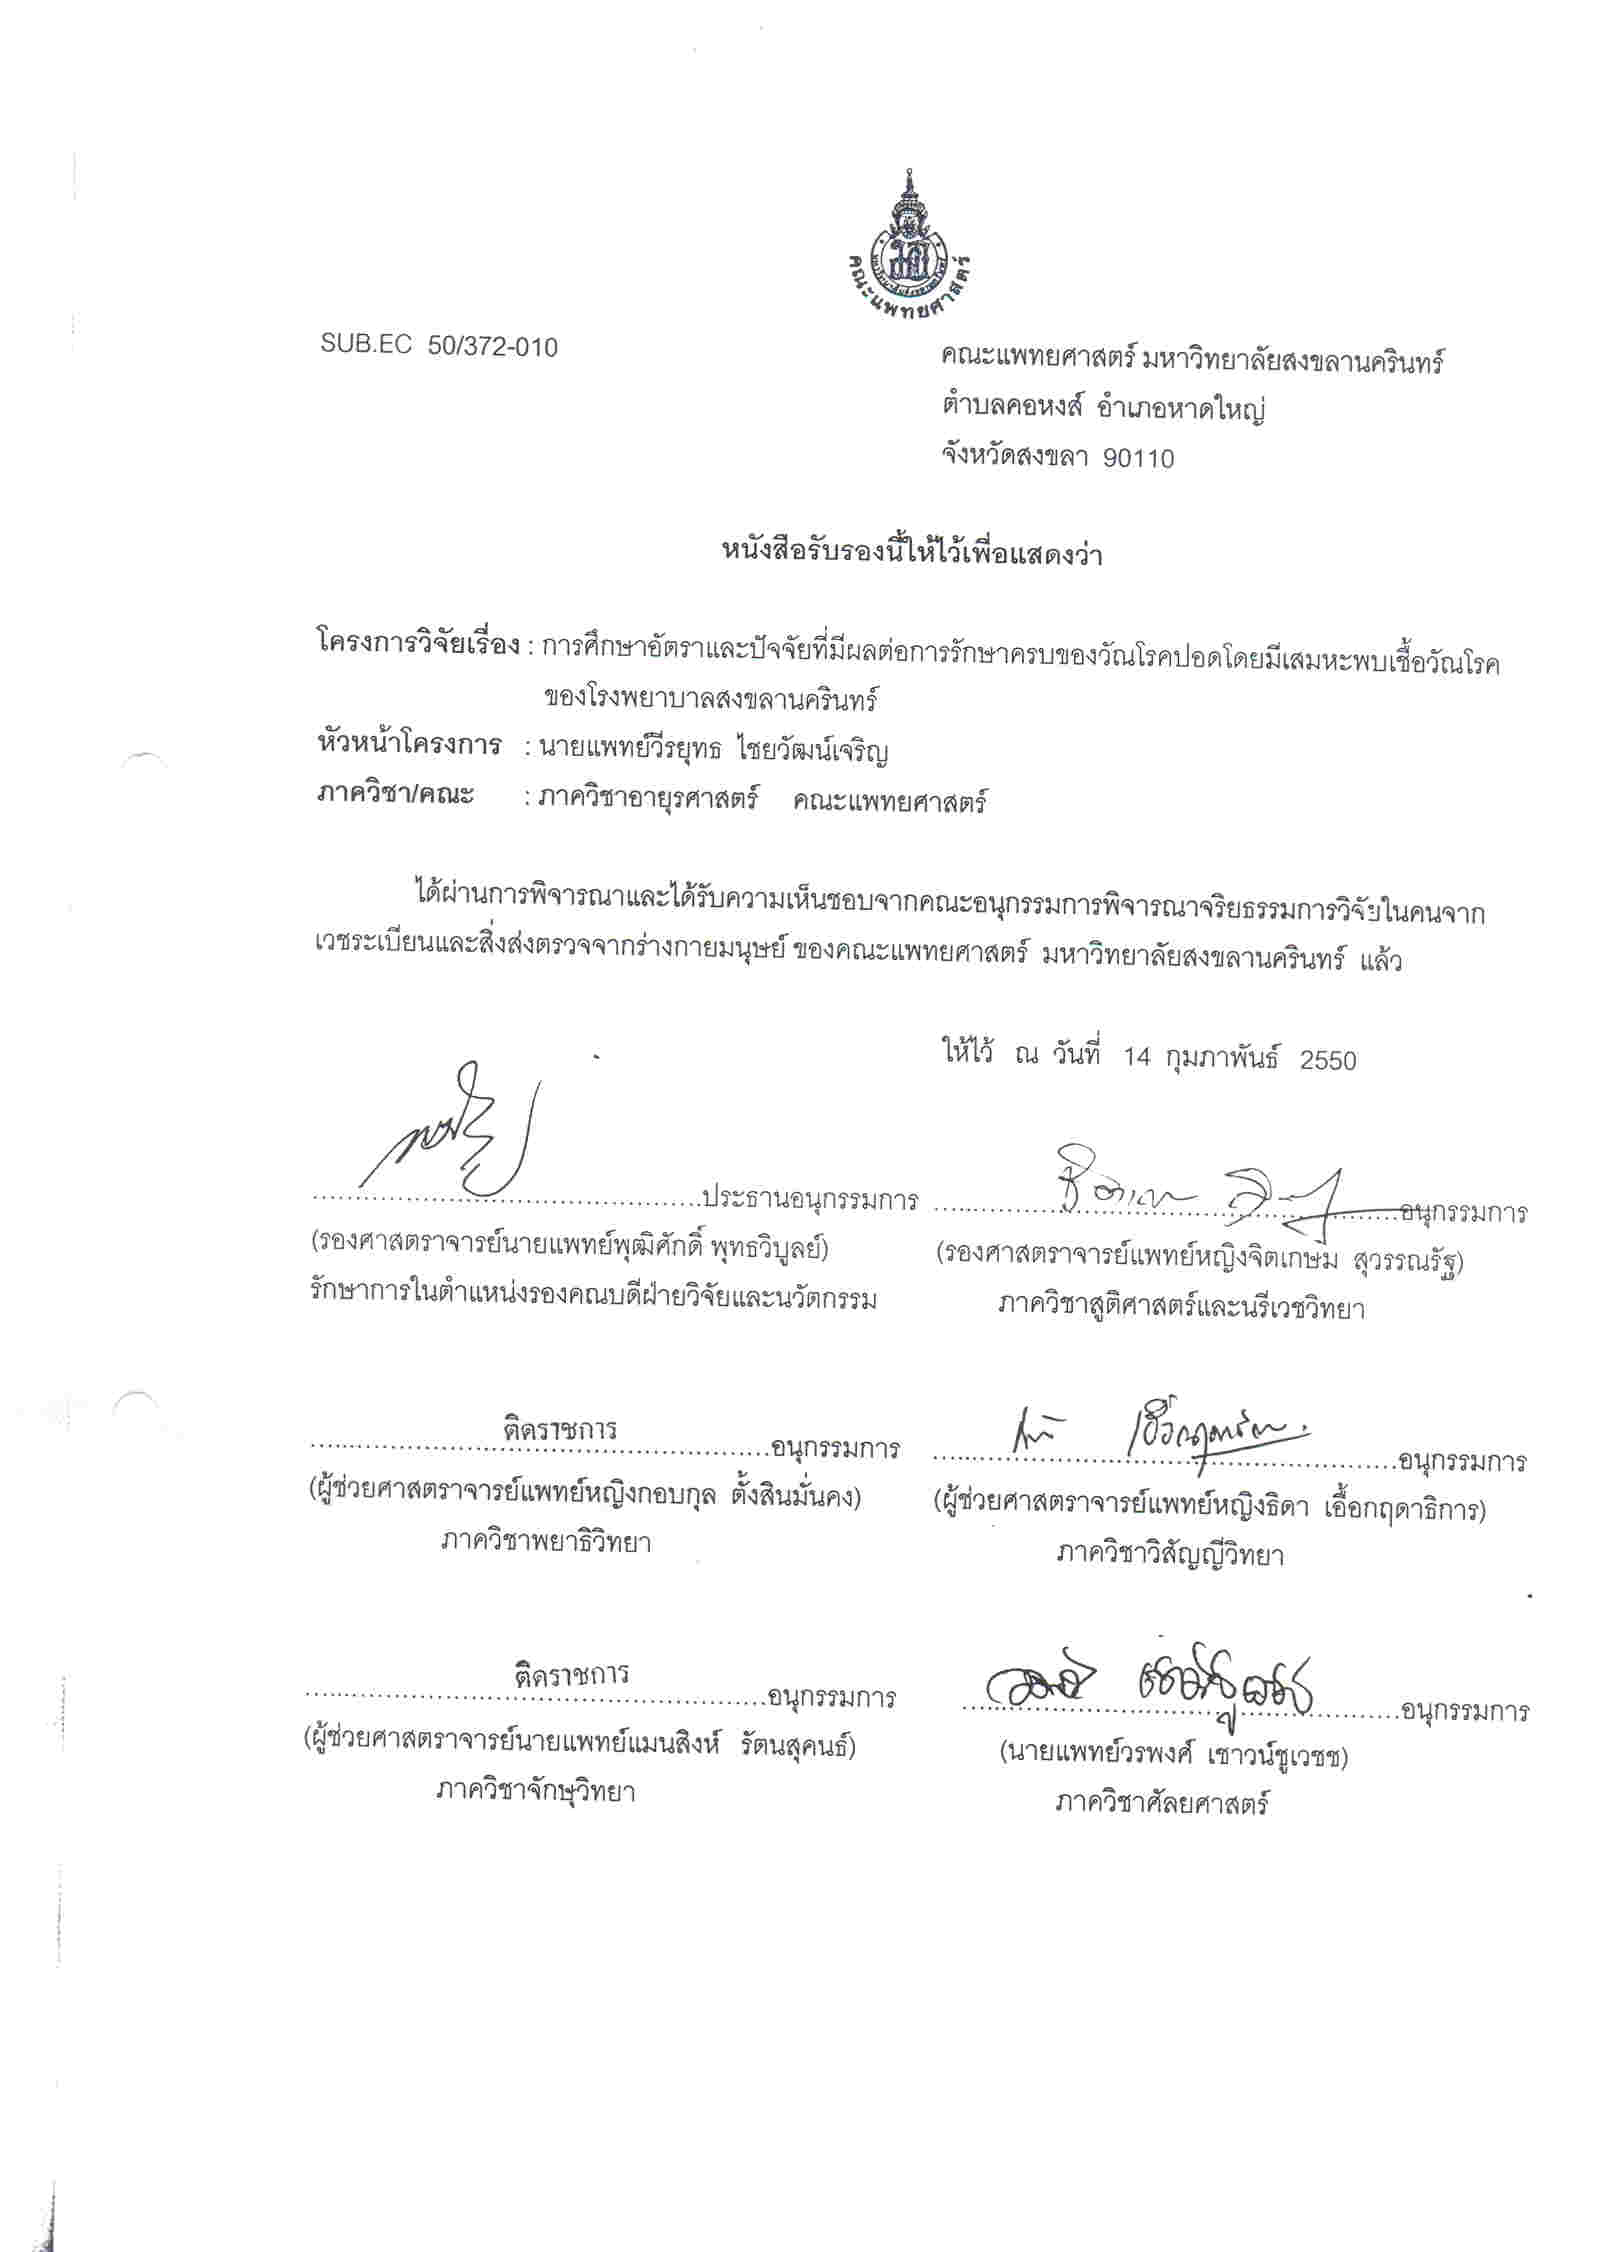 คณะแพทยศาสตร์
SUB.EC 50/372-010
คณะแพทยศาสตร์ มหาวิทยาลัยสงขลานครินทร์
ตำบลคอหงส์ อำเภอหาดใหญ่
จังหวัดสงขลา 90110
หนังสือรับรองนี้ให้ไว้เพื่อแสดงว่า
โครงการวิจัยเรื่อง : การศึกษาอัตราและปัจจัยที่มีผลต่อการรักษาครบของวัณโรคปอดโดยมีเสมหะพบเชื้อวัณโรค
ของโรงพยาบาลสงขลานครินทร์
หัวหน้าโครงการ : นายแพทย์วีรยุทธ ไชยวัฒน์เจริญ
ภาควิชา/คณะ : ภาควิชาอายุรศาสตร์ คณะแพทยศาสตร์
ได้ผ่านการพิจารณาและได้รับความเห็นชอบจากคณะอนุกรรมการพิจารณาจริยธรรมการวิจัยในคนจาก
เวชระเบียนและสิ่งส่งตรวจจากร่างกายมนุษย์ ของคณะแพทยศาสตร์ มหาวิทยาลัยสงขลานครินทร์ แล้ว
ให้ไว้ ณ วันที่ 14 กุมภาพันธ์ 2550
ประธานอนุกรรมการ
อนุกรรมการ
(รองศาสตราจารย์นายแพทย์พุฒิศักดิ์ พุทธวิบูลย์)
(รองศาสตราจารย์แพทย์หญิงจิตเกษม สุวรรณรัฐ)
รักษาการในตำแหน่งรองคณบดีฝ่ายวิจัยและนวัตกรรม
ภาควิชาสูติศาสตร์และนรีเวชวิทยา
ติดราชการ อนุกรรมการ
อนุกรรมการ
(ผู้ช่วยศาสตราจารย์แพทย์หญิงกอบกุล ตั้งสินมั่นคง)
(ผู้ช่วยศาสตราจารย์แพทย์หญิงธิดา เอื้อกฤดาธิการ)
ภาควิชาพยาธิวิทยา
ภาควิชาวิสัญญีวิทยา
ติดราชการ อนุกรรมการ
อนุกรรมการ
(ผู้ช่วยศาสตราจารย์นายแพทย์แมนสิงห์ รัตนสุคนธ์)
(นายแพทย์วรพงศ์ เชาวน์ชูเวชช)
ภาควิชาจักษุวิทยา
ภาควิชาศัลยศาสตร์